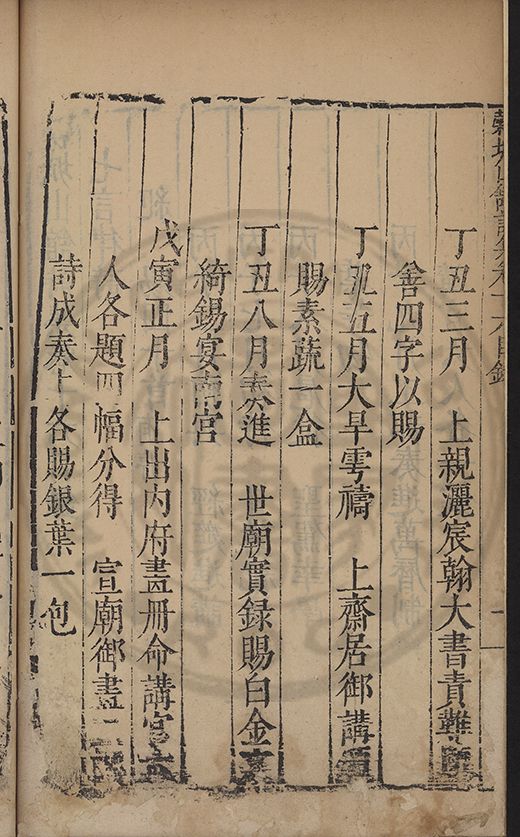 丁丑三月　上親灑宸翰大書責難
舍四字以賜
丁丑五月大旱雩禱　上齋居御講
賜素蔬一盒
丁丑八月奏進　世廟實錄賜白金
綺錫宴南宮
戊寅正月　上出内府畫冊命講官六
人各題四幅分得　宣廟御畫二
詩成奏上各賜銀葉一包